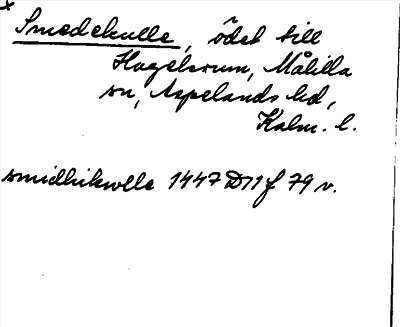 x
Smedekulle, ödet till
Hagelsrum, Målilla
sn, Aspelands hd,
Kalm. l.
smidhikwlle 1447 D11 f 79 v.